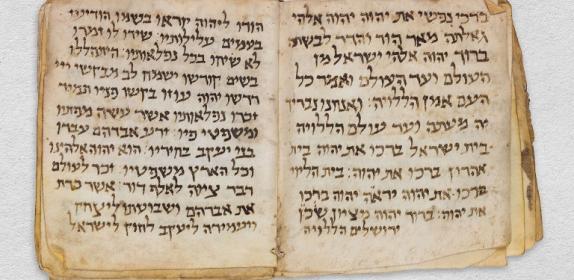 ברכי נפשי את יהוה יהוה אלהי
גדלתה מאד הוד והדר לבשת
ברוך יהוה אלהי ישראל מן
העולם ועד העולם ואמר כל
העם אמן הללויה: ואנחנו נברך
יה מעתה ועד עולם הללויה
בית ישראל ברכו את יהוה בית
אהרון ברכו את יהוה: בית הלוי
ברכו את יהוה יראה יהוה ברכו
את יהוה: ברוך יהוה מציון שכן
ירושלים הללויה
הודו ליהוה קראו בשמו הודיעו
בעמים עלילותיו: שירו לו זמרו
לו שיחו בכל נפלאותיו: התהללו
בשם קודשו ישמח לב מבקשי ייי
דרשו יהוה עוזו בקשו פניו תמיד
זכרו נפלאותיו אשר עשה מפתיו
ומשפטי פיו: זרע אברהם עבדו
בני יעקב בחיריו: הוא יהוה אלהינו
וכל הארץ משפטיו: זכר לעולם
דבר ציוה לאלף דור: אשר כרת
את אברהם ושבועתו ליצחק
ויעמידה ליעקב לחוק לישראל